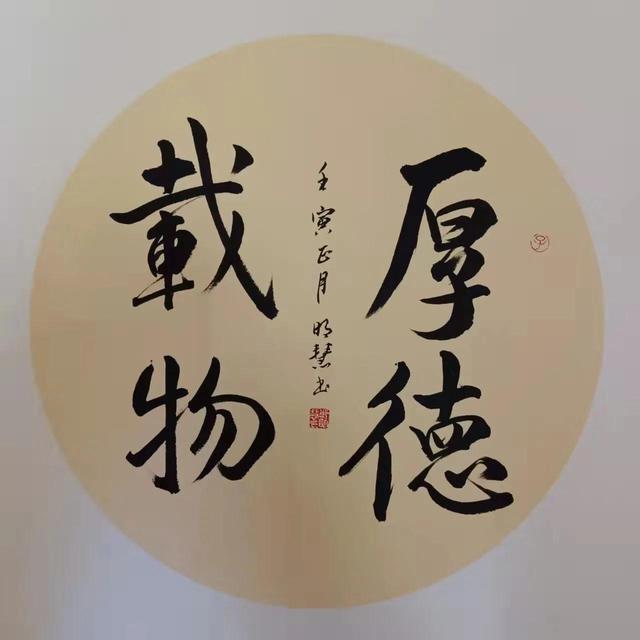 厚德
載物
壬寅正月明慧书